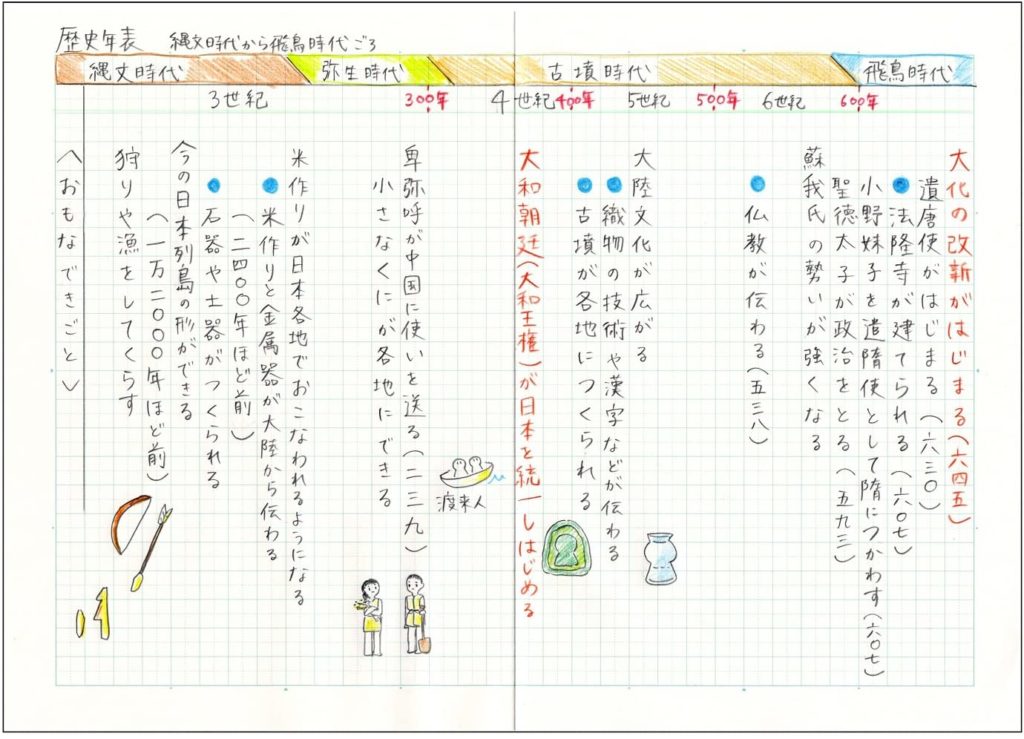 歴史年表 縄文時代から飛鳥時代ごろ
縄文時代 弥生時代 古墳時代 飛鳥時代
3世紀 300年 4世紀 400年 5世紀 500年 6世紀 600年
大化の改新がはじまる(六四五)
遣唐使がはじまる(六三〇)
●法隆寺が建てられる(六〇七)
小野妹子を遣隋使として隋につかわす(六〇七)
聖徳太子が政治をとる(五九三)
蘇我氏の勢いが強くなる
●仏教が伝わる(五三八)
大陸文化が広がる
●織物の技術や漢字などが伝わる
●古墳が各地につくられる
大和朝廷(大和王権)が日本を統一しはじめる
渡来人
卑弥呼が中国に使いを送る(二三九)
小さなくにが各地にできる
米作りが日本各地でおこなわれるようになる
●米作りと金属器が大陸から伝わる
(二四〇〇年ほど前)
●石器や土器がつくられる
今の日本列島の形ができる
(一万二〇〇〇年ほど前)
狩りや漁をしてくらす
〈おもなできごと〉